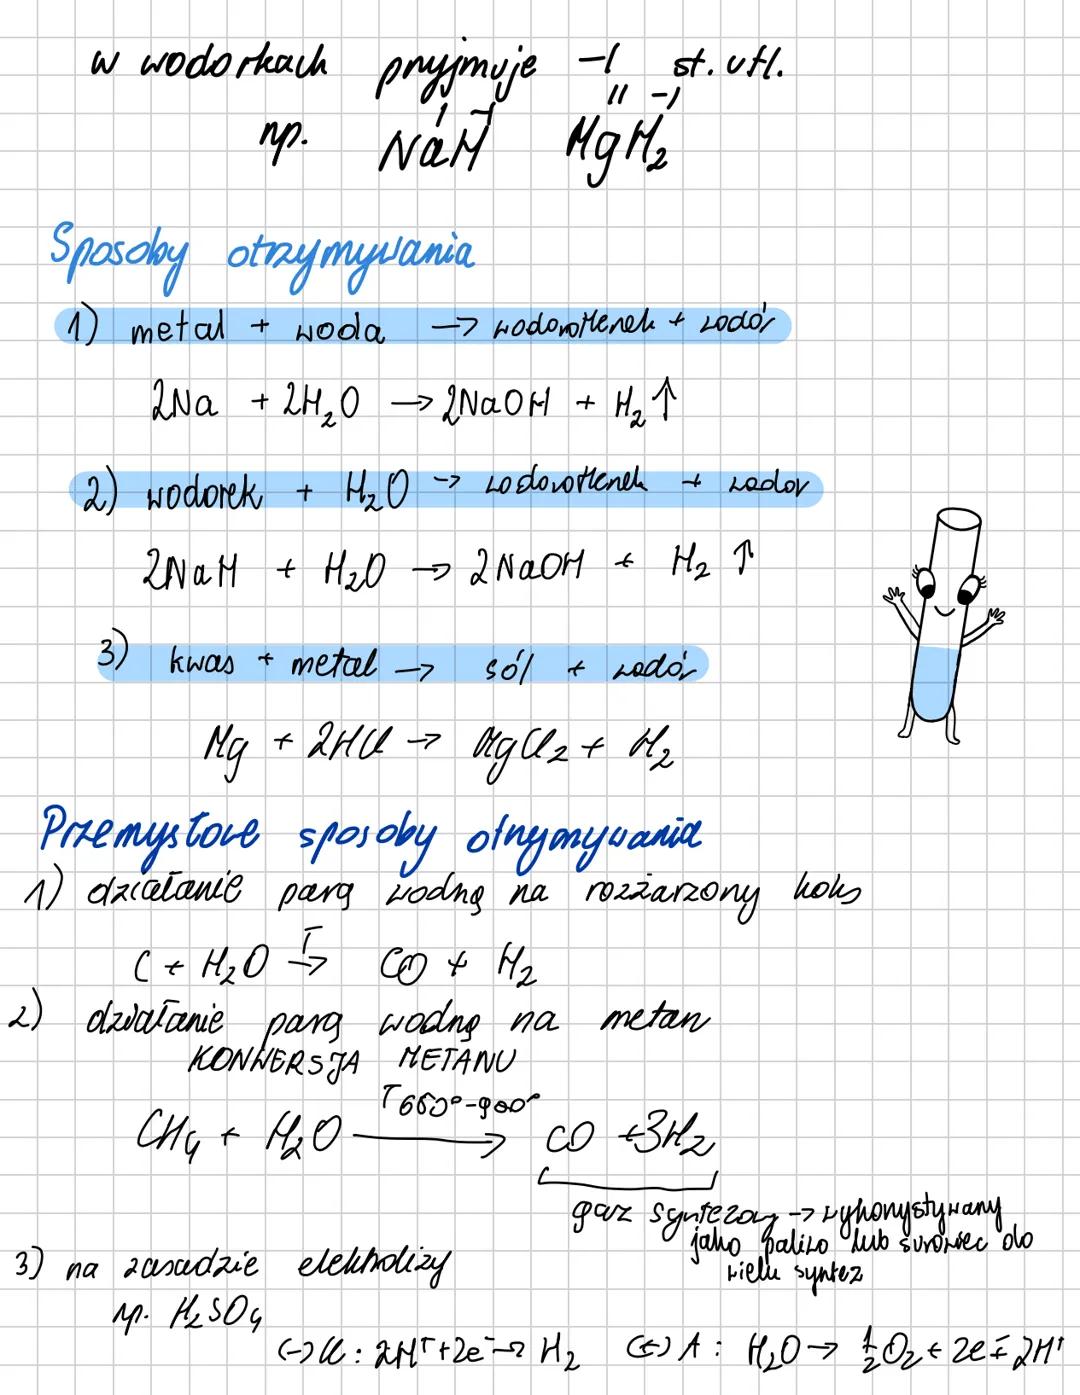 w wodorkach przyjmuje -I st. utl.
np. NaH MgH₂
I -I II -I
Sposoby otrzymywania
1) metal + woda → wodorotlenek + wodór
2Na + 2H₂O → 2NaOH + H₂↑
2) wodorek + H₂O → wodorotlenek + wodór
2NaH + H₂O → 2NaOH + H₂ ↑
3) kwas + metal → sól + wodór
Mg + 2HCl → MgCl₂ + H₂
Przemysłowe sposoby otrzymywania
1) działanie parą wodną na rozżarzony koks
C + H₂O →
T
CO + H₂
2) działanie parą wodną na metan
KONWERSJA METANU
T 650°-900°
CH₄ + H₂O → CO + 3H₂
gaz syntezowy → wykorzystywany
jako paliwo lub surowiec do
wielu syntez
3) na zasadzie elektrolizy
np. H₂SO₄
(-)K: 2H⁺ + 2e⁻ → H₂ (+)A: H₂O → ½O₂ + 2e⁻ + 2H⁺